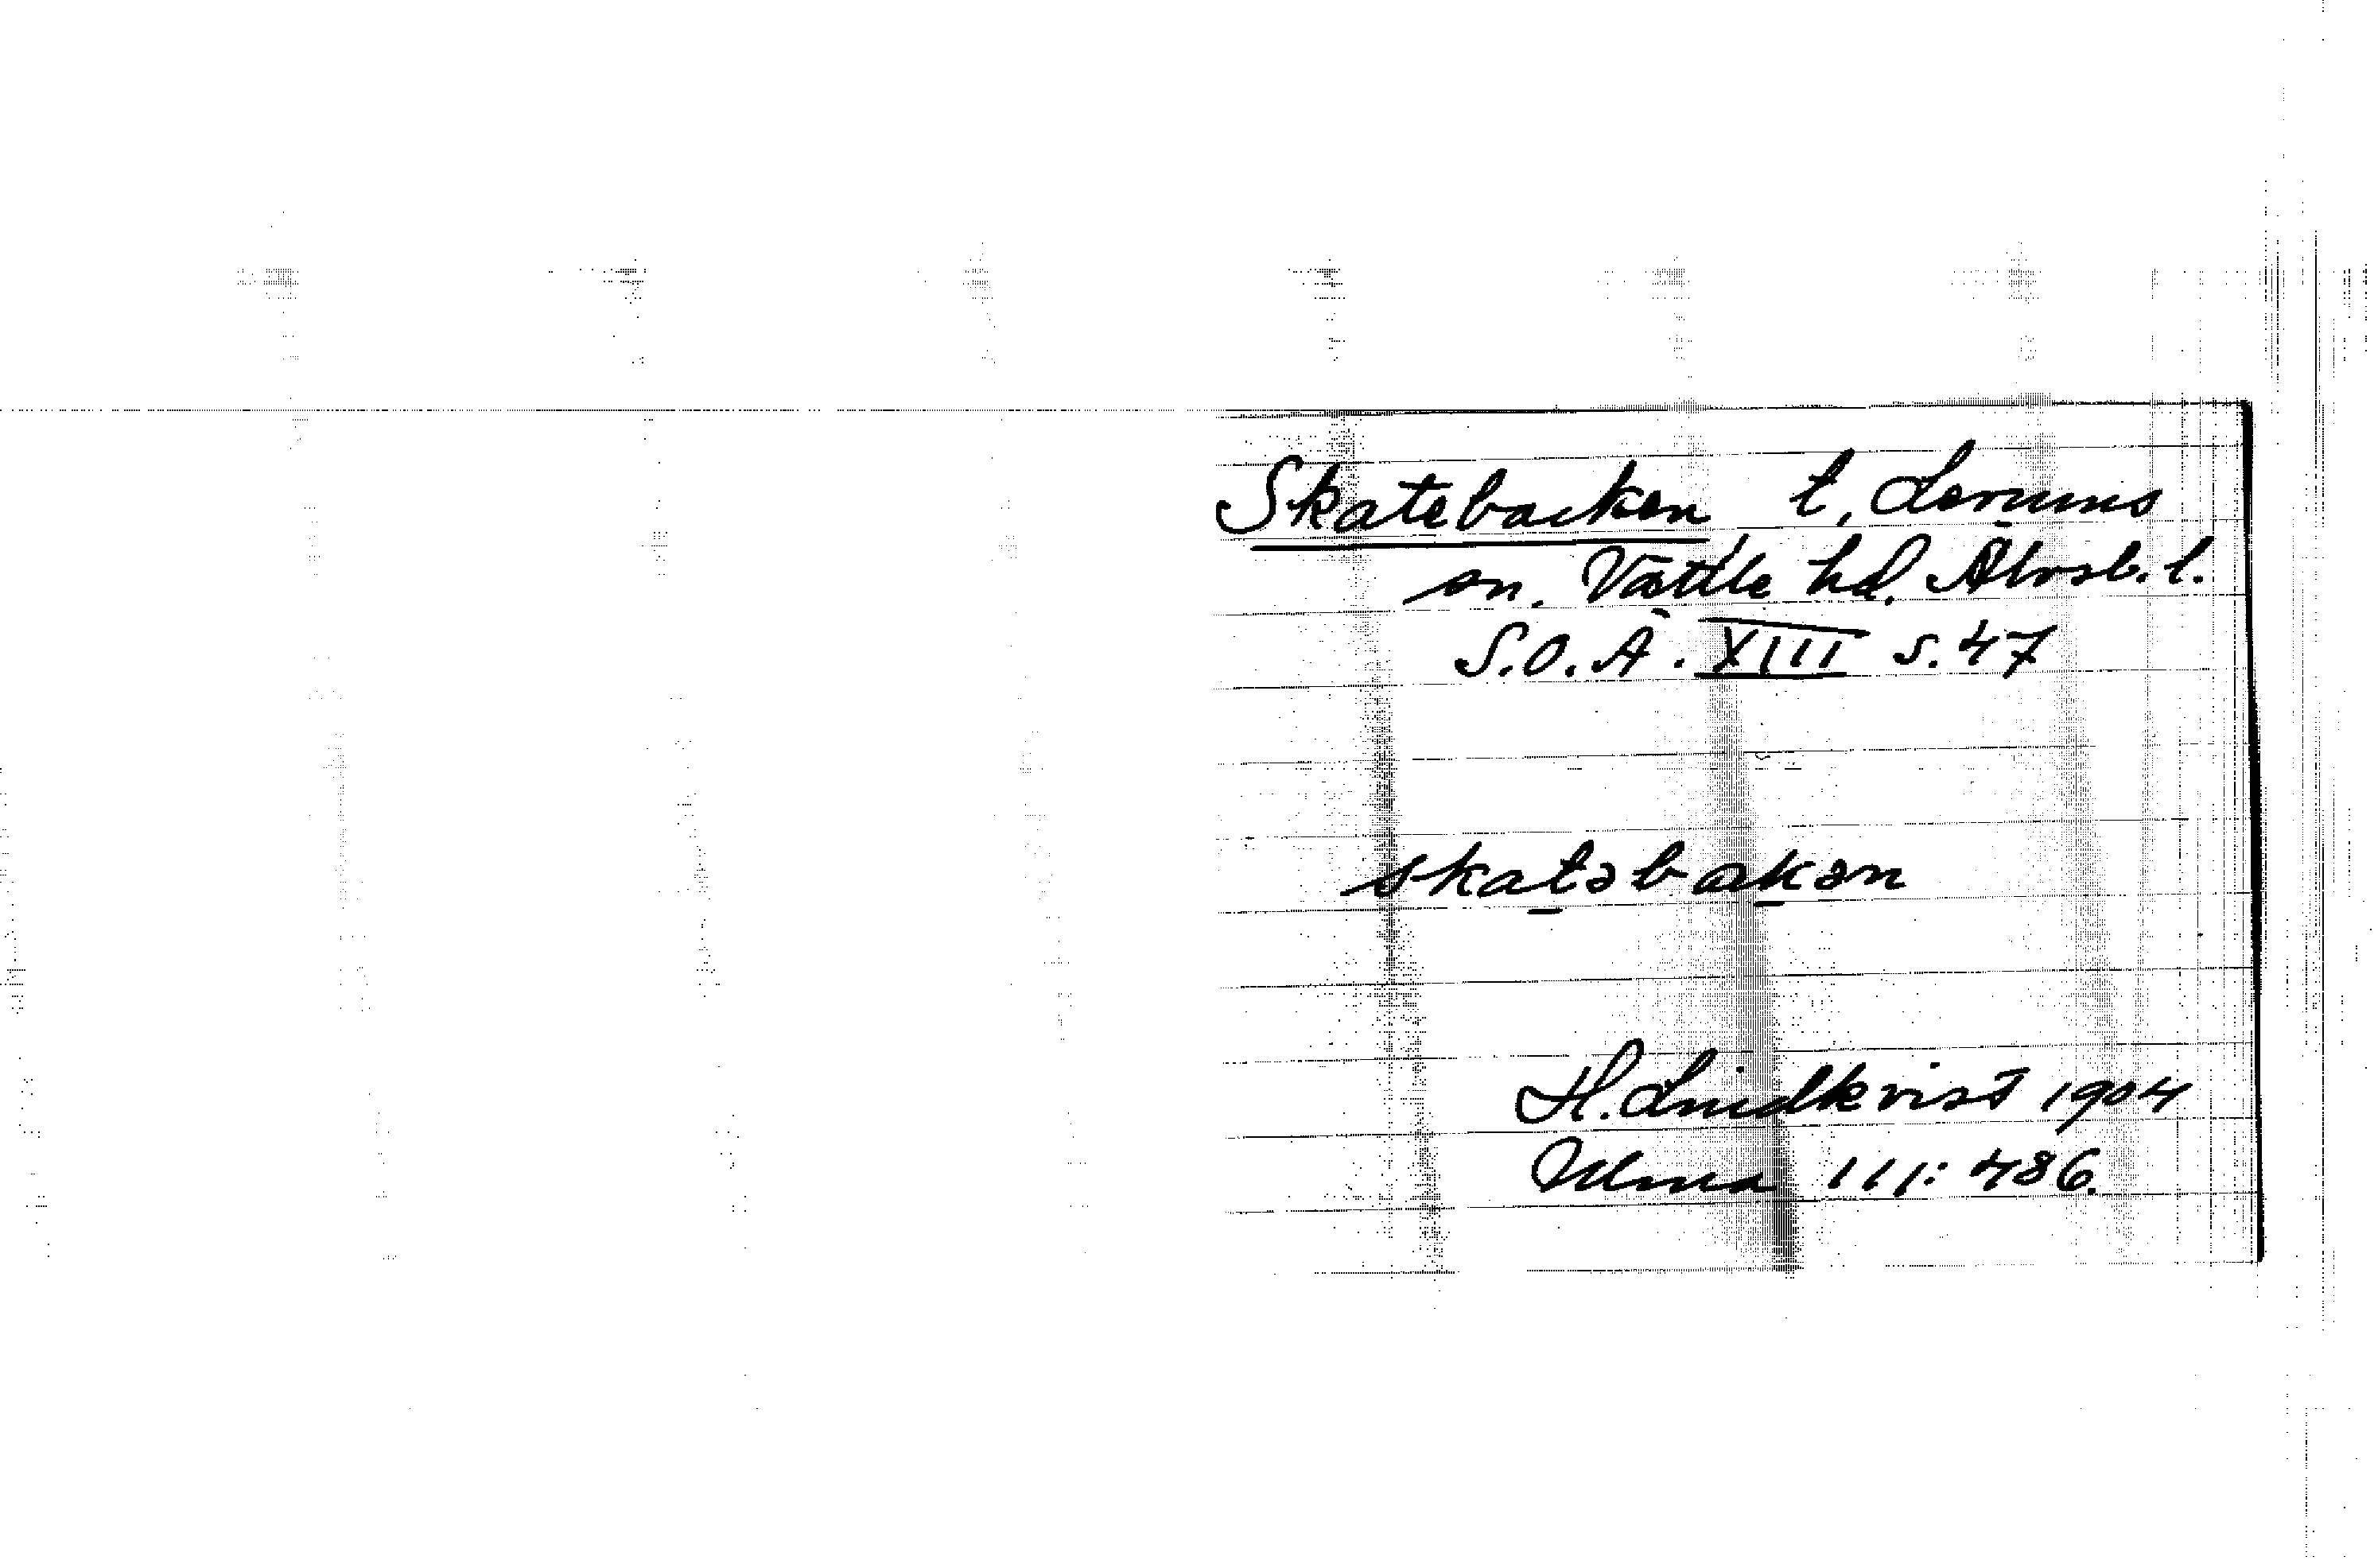 Skatebacken t, Lerums
sn. Vättle hd. Älvsb. l.
S.O.Ä. XIII s. 47
skatəbakən
H. Lindkvist 1904
III: 486.